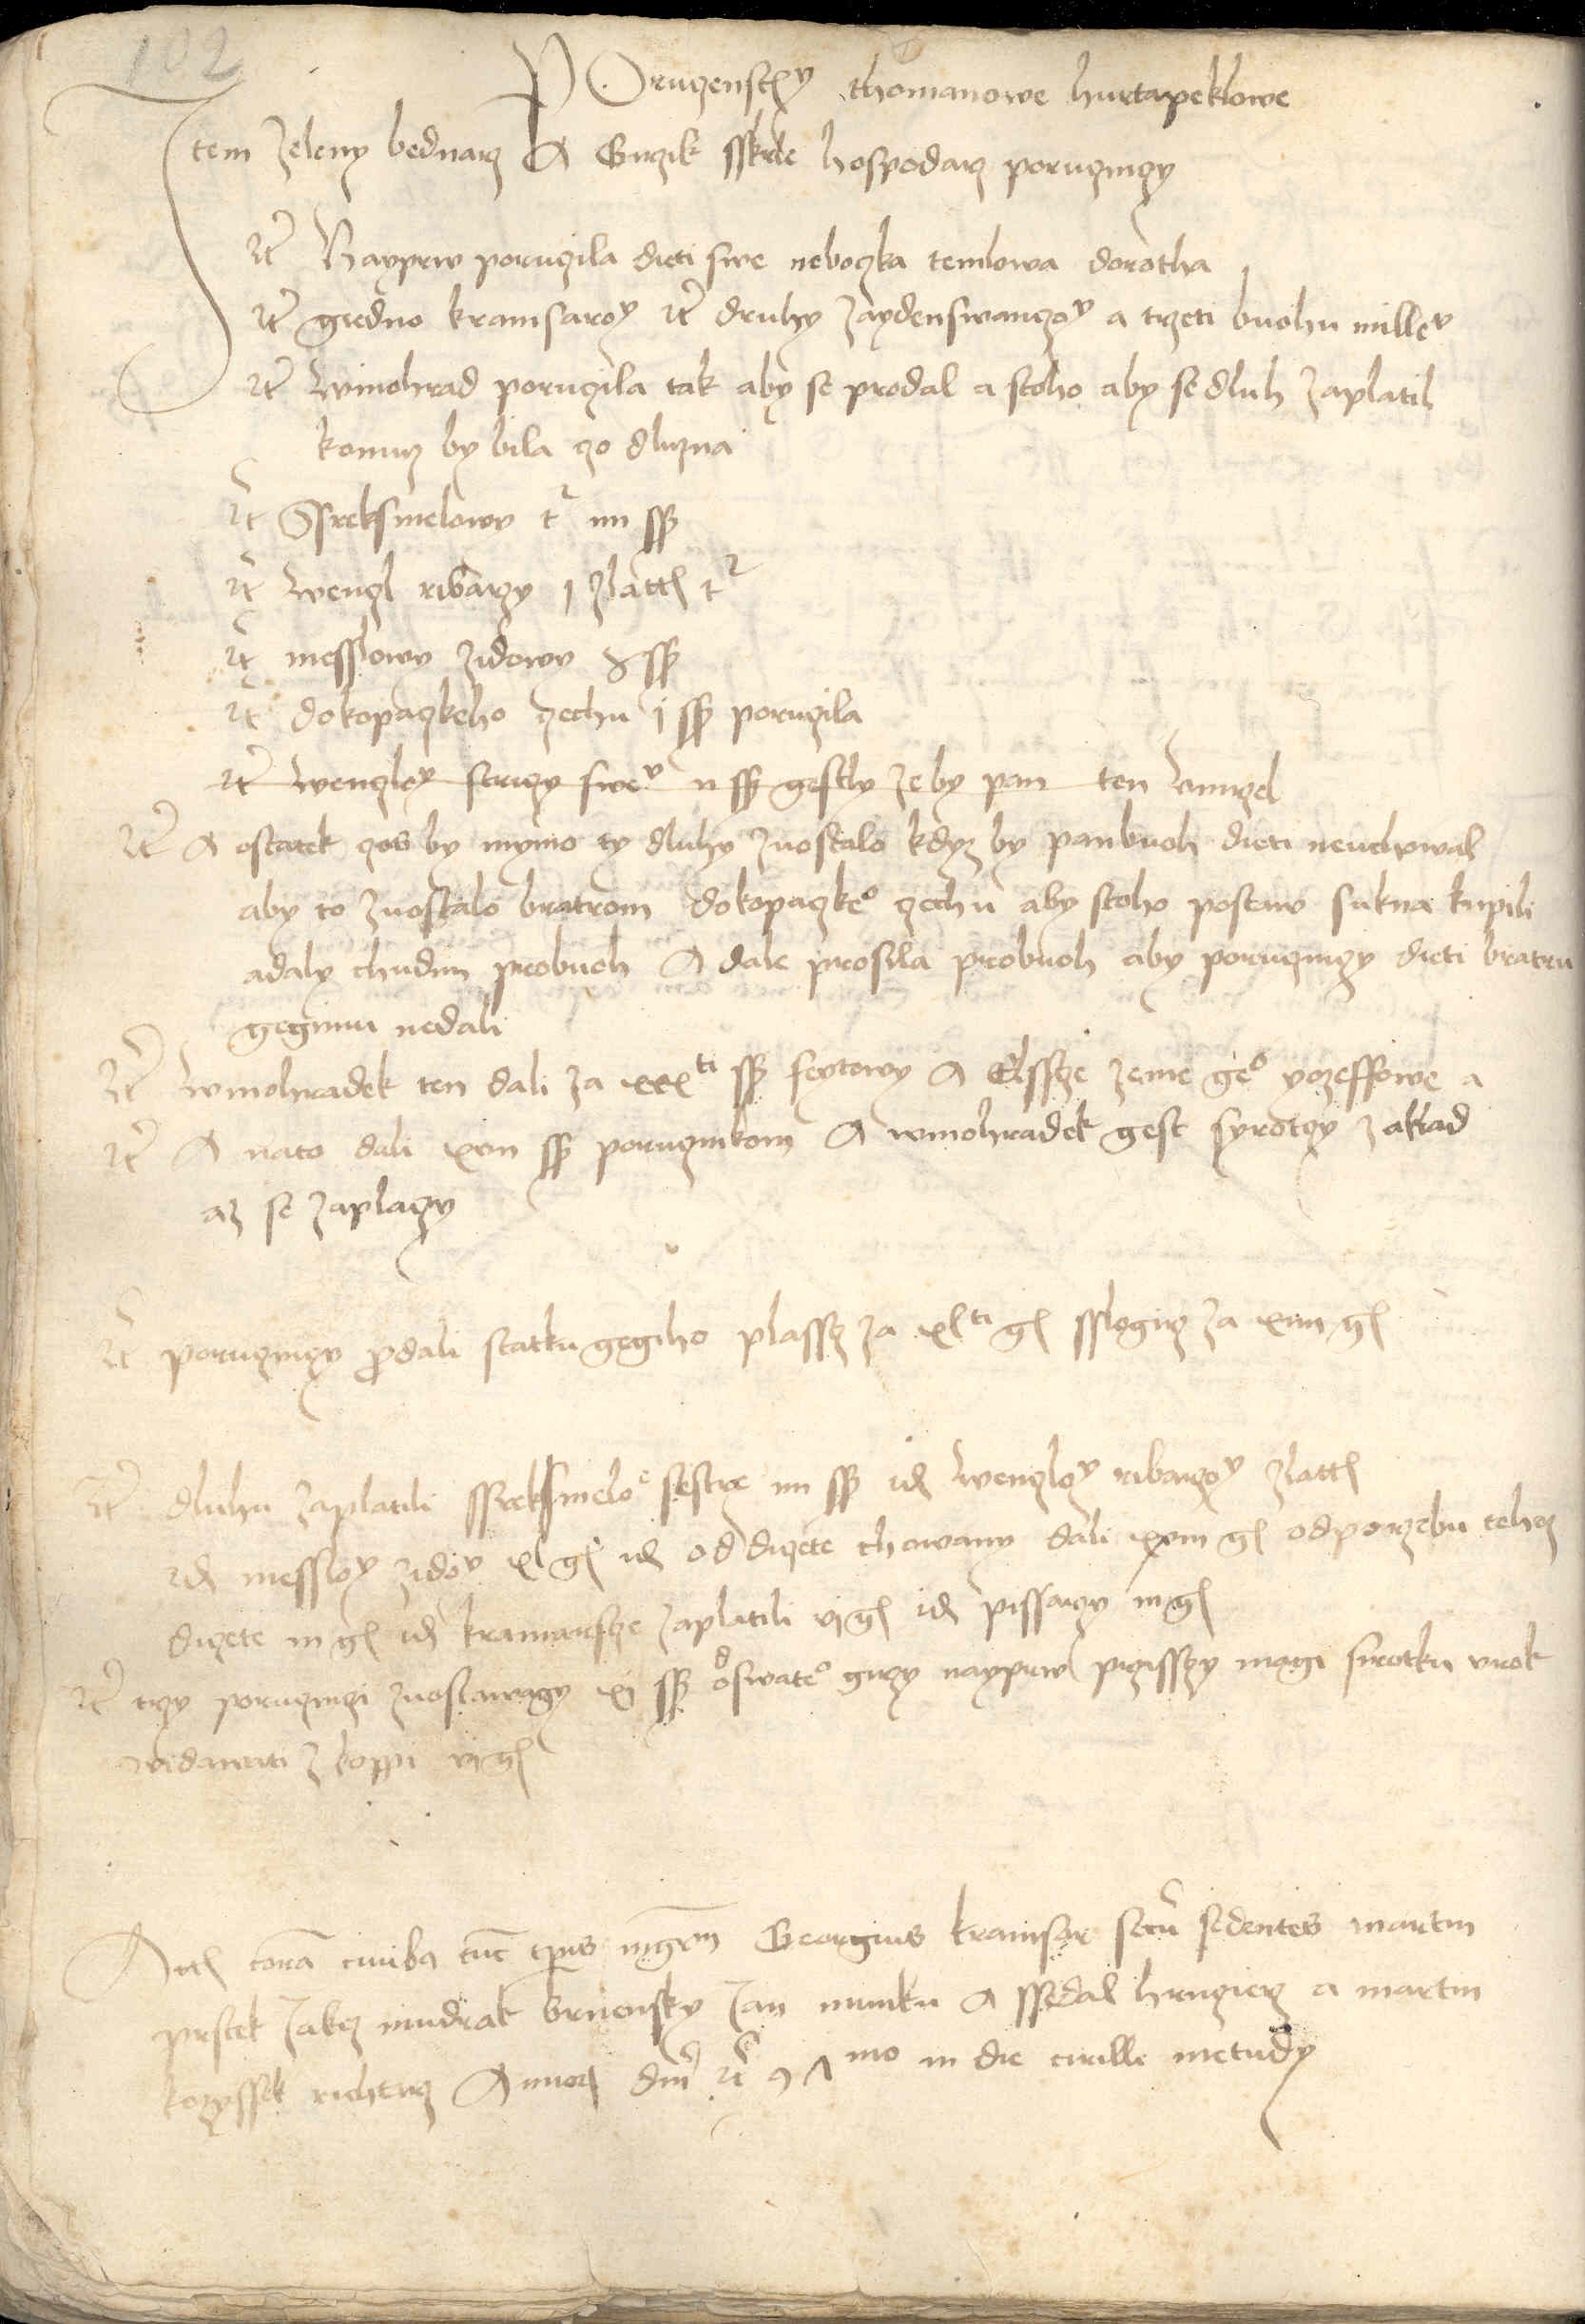 102
POruczenstwy thomanowe hurtapeklowe
Item Zeleny bednarz A Girzik sskrle hospodarz porucznyczy
Itē Nayprw poruczila dieti swe neboczka temlowa dorotha
Itē giedno kramsaroy Itē druhy Zaydenswanczoy a trzeti buohu millev
Itē winohrad poruczila tak aby se prodal a stoho aby se dluh zaplatil
komuz by bila czo dluzna
Itē Ssreksmelowy iiii ss
Itē wenczl ribarzy j zlatth
Itē messlowy zidowy ss
Itē do kopaczkeho czechu j ss poruczila
Itē wenczloy strziczy swev ii ss gestly ze by pan ten
Itē A ostatek czos by mymo ty dluhy zuostalo kdyz by pan buoh dieti neuchowal
aby to zuostalo bratrom do kopaczkeo czechu aby stoho postaw sukna kupili
a daly chudim pro buoh A dale prosila pro buoh aby porucznyczy dieti bratru
gegimu nedali
Itē winohradek ten dali za xxxti ss fextowy A Elssce zenie geo yozeffowe a
Itē A na to dali xvii ss porucznikom A winohradek gest syrotczy zaklad
az se zaplaczy
Itē porucznyczy prodali statku gegiho plasscz za xlti gl sslogirz za xiiii gl
Itē dluhu zaplatili ssreksmeloe sestrze iiii ss id wenczloy ribarzoy zlatth
id messloy zidov xl gl id od dieczete chowany dali xviii gl od porzebu tehoz
dieczete iii gl id kramarssce zaplatili vi gl id pissarzy iii gl
Itē trzy porucznyczi zuostawagy xi ss od swateo girzy nayprw przissczy magi sirotku urok
widawati z koppi vi gl
Acta corā ciuibq tūc tpris mgrm Georgius kramsar secū sedentes martin
prstek Jakez mudrak brnensky Jan munku A ssidal hrnczierz a martin
kozyssek richtarz Anno dm̄ mo in die cirille metudy